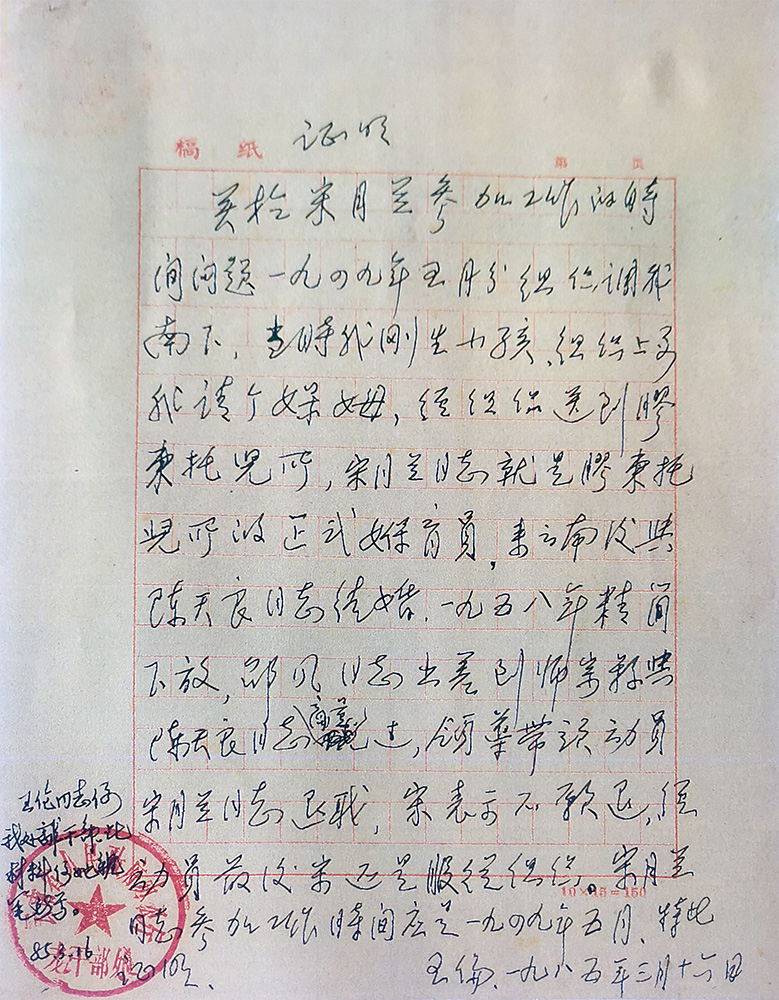 证明
稿 纸
第 页
关於宋月兰参加工作的时
间问题一九四九年五月分组织调我
南下，当时我刚生小孩、组织上多
我请个保姆，经组织送到膠
东托児所，宋月兰同志就是膠东托
児所的正式保育员，来云南后与
陈天良同志结婚．一九五八年精简
下放，邹风同志出差到师宗县与
陈天良同志商量过，领导带头动员
宋月兰同志退职，宋表示不愿退，经
动员最后宋还是服从组织。宋月兰
10×15=150
同志参加工作时间应是一九四九年五月．特此
证明．
王伦．一九八五年三月十六日
王伦同志係
我处部干部，此
材料係她
毛笔写。
85.3.16